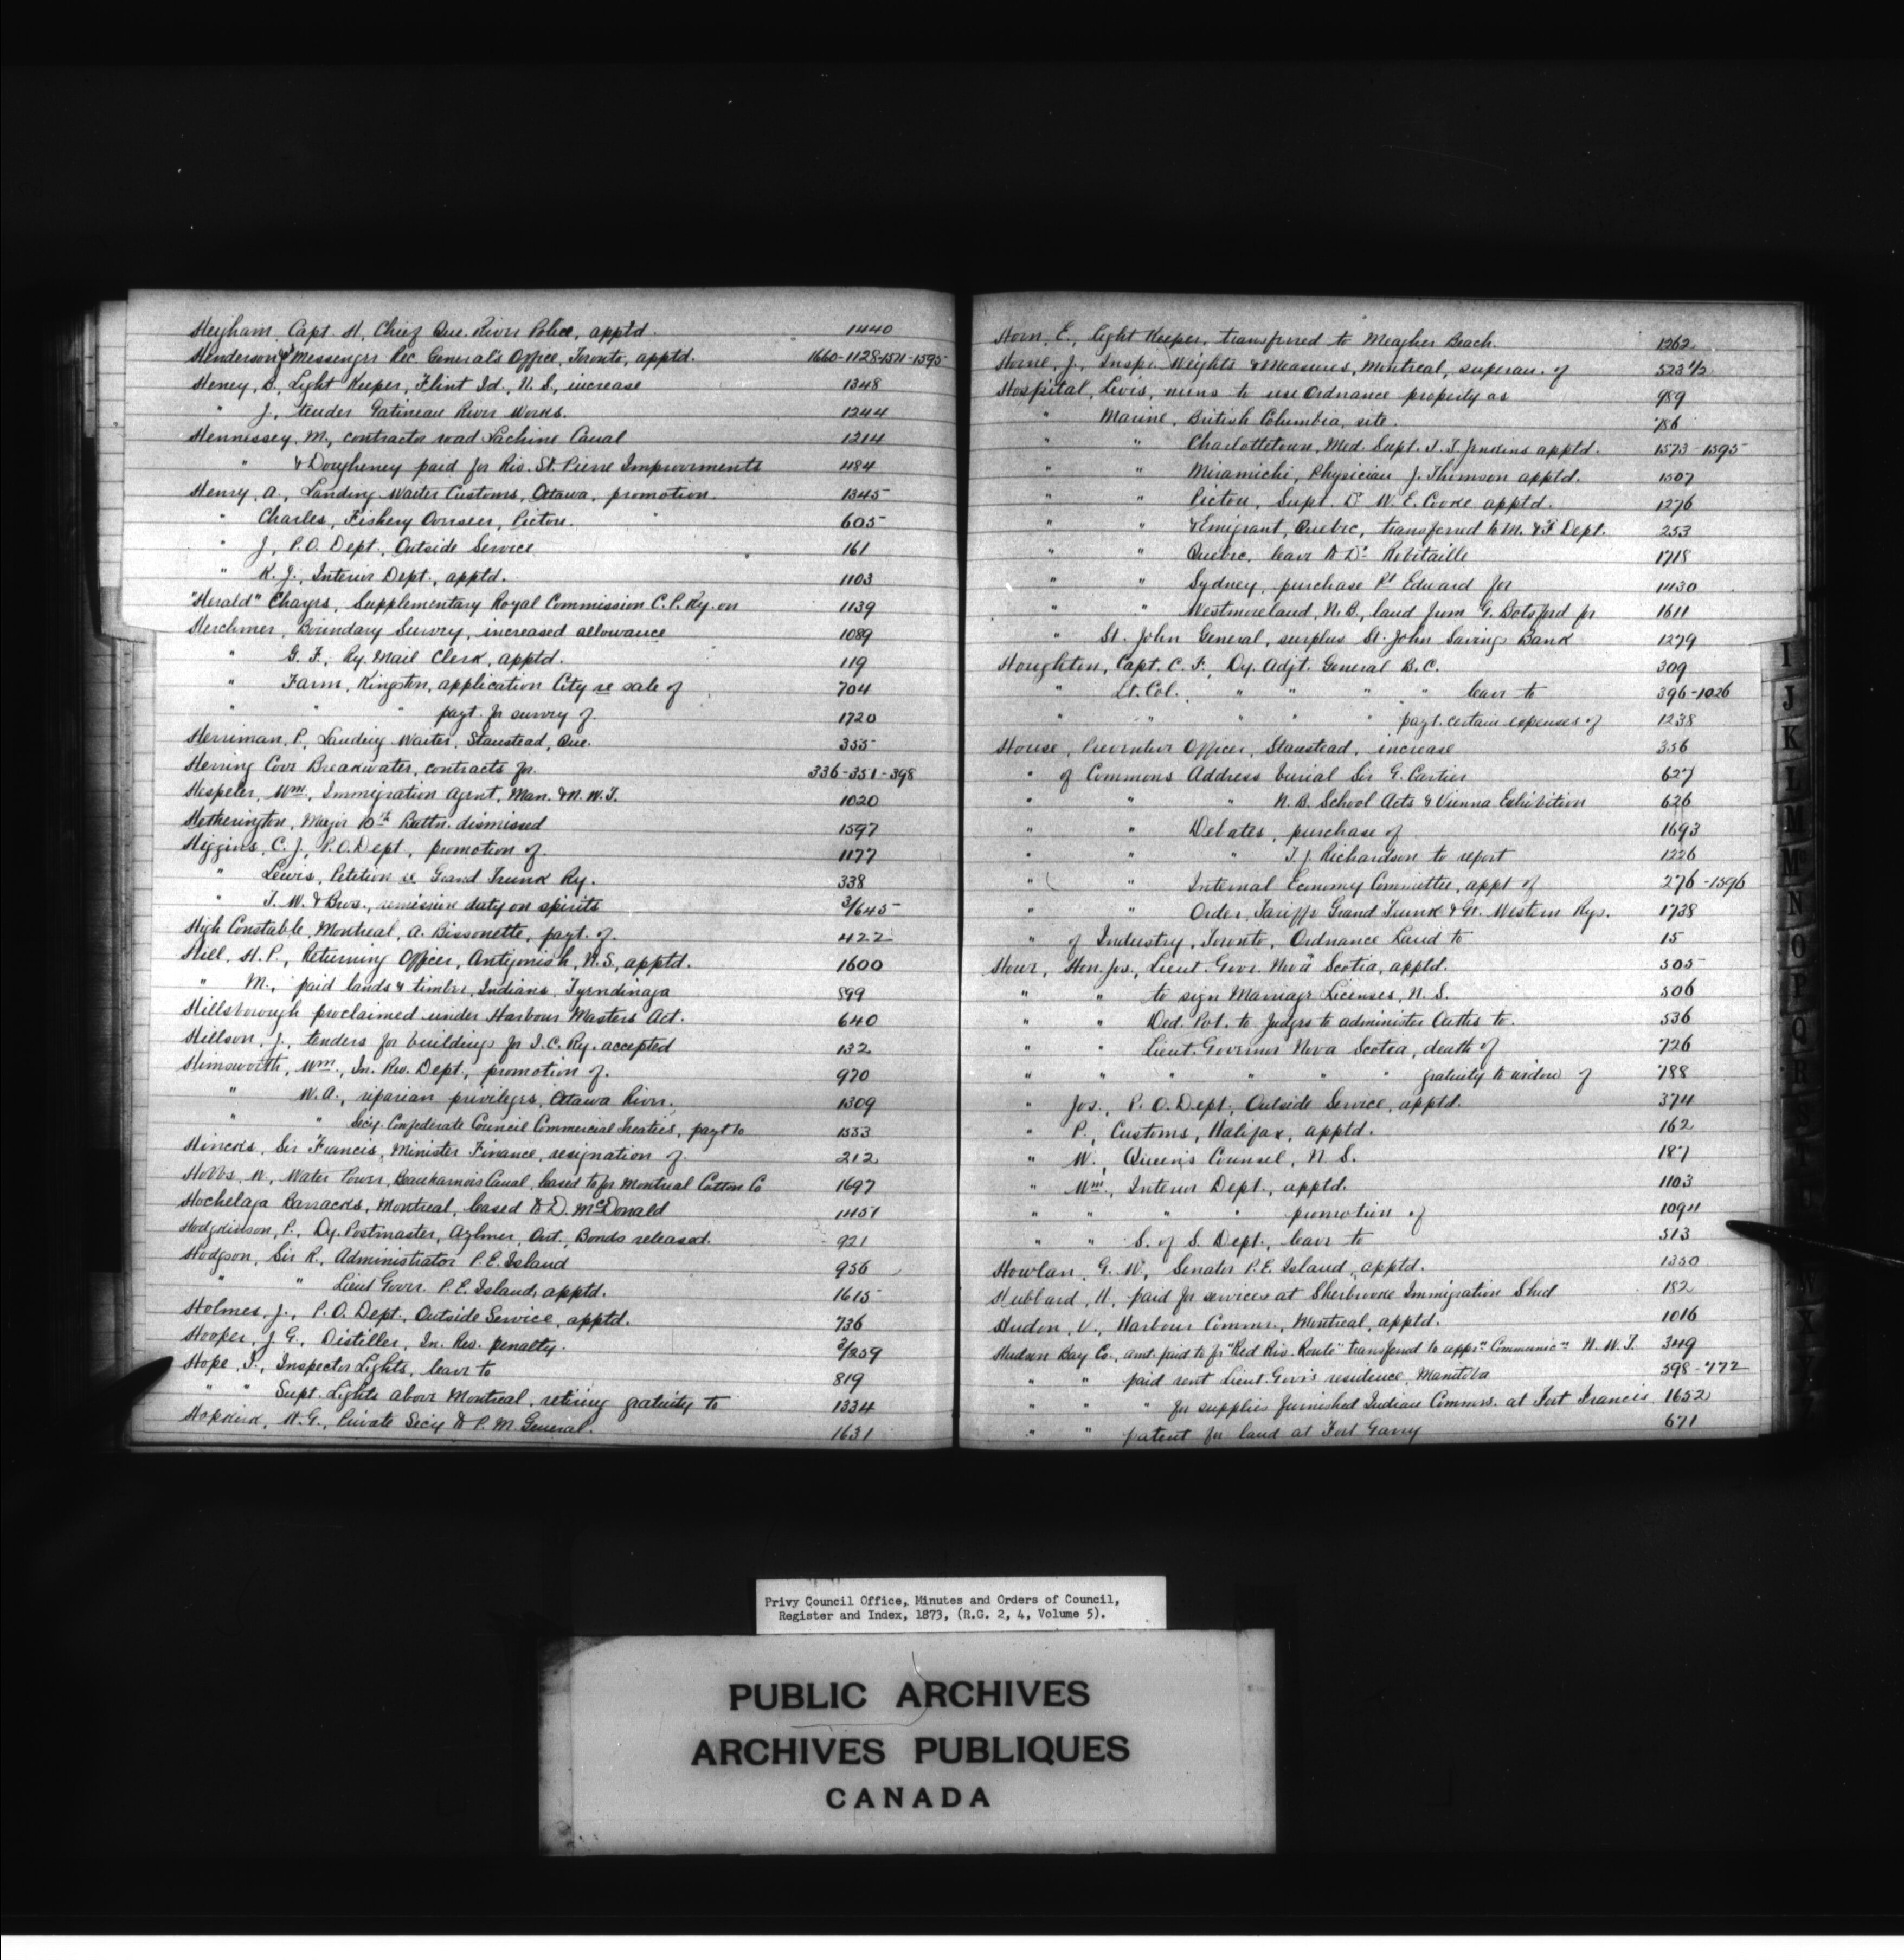 Heigham, Capt. H, Chief Que. River Police, apptd. 1440
Henderson, J. Messenger Rec. General's Office, Toronto, apptd. 1660-1128-1571-1595
Heney, B, Light Keeper, Flint Id., N.S, increase 1348
" J., tender Gatineau River Works. 1244
Hennessey, M., contractor road Lachine Canal 1214
" & Dougheney paid for Riv. St. Pierre Improvements 484
Henry, A., Landing Waiter Customs, Ottawa, promotion. 1345
" Charles, Fishery Overseer, Pictou. 605
" J, P.O. Dept., Outside Service 161
" K. J., Interior Dept., apptd. 1103
"Herald" Chayrs, Supplementary Royal Commission C.P. Ry. on 1139
Herchmer, Boundary Survey, increased allowance 1089
" G. F., Ry. Mail Clerk, apptd. 119
" Farm, Kingston, application City re sale of 704
" " " payt. for survey of. 1720
Herriman, P., Landing Waiter, Stanstead, Que. 355
Herring Cove Breakwater, contracts for. 336-351-398
Hespeler, Wm., Immigration Agent, Man. & N.W.T. 1020
Hetherington, Major 10th Battn. dismissed 1597
Higgins, C. J., P.O. Dept, promotion of. 1177
" Lewis, Petition re Grand Trunk Ry. 338
" T. W. & Bros., remission duty on spirits 3/645
High Constable, Montreal, A. Bissonette, payt. of. 422
Hill, H. P., Returning Officer, Antigonish, N.S., apptd. 1600
" M., paid lands & timber, Indians, Tyendinaga 899
Hillsborough proclaimed under Harbour Masters Act. 640
Hillson, J., tenders for buildings for I.C. Ry. accepted 132
Himsworth, Wm., In. Rev. Dept., promotion of. 970
" W. A., riparian privileges, Ottawa River. 1309
" " Secy. Confederate Council Commercial Treaties, payt to 1533
Hincks, Sir Francis, Minister Finance, resignation of. 212
Hobbs, W., Water Power, Beauharnois Canal, leased to for Montreal Cotton Co 1697
Hochelaga Barracks, Montreal, leased to D. McDonald 1451
Hodgkinson, P., Dy. Postmaster, Aylmer, Ont., Bonds released. 921
Hodgson, Sir R., Administrator P. E. Island 956
" " Lieut Govr. P. E. Island, apptd. 1615
Holmes, J., P.O. Dept., Outside Service, apptd. 736
Hooper, J. G., Distiller, In. Rev. penalty. 3/259
Hope, T., Inspector Lights, leave to 819
" " Supt. Lights above Montreal, retiring gratuity to 1334
Hopkirk, H. G., Private Secy to P. M. General. 1631
Horn, E., Light Keeper, transferred to Meagher Beach. 1262
Horne, J., Inspr. Weights & Measures, Montreal, superan. of 523 1/2
Hospital, Levis, nuns to use Ordnance property as 989
" Marine, British Columbia, site. 786
" " Charlottetown, Med. Supt. S. T. Jenkins apptd. 1573-1595
" " Miramichi, Physician J. Thomson apptd. 1507
" " Pictou, Supt. Dr W. E. Cooke apptd. 1276
" " & Emigrant, Quebec, transferred to M. & F Dept. 253
" " Quebec, leave to Dr Robitaille 1718
" " Sydney, purchase Pt Edward for 1430
" " Westmoreland, N.B., land from G. Botsford for 1611
" St. John General, surplus St. John Savings Bank 1279
Houghton, Capt. C. F., Dy. Adjt. General B.C. 309
" Lt. Col. " " " " leave to 396-1026
" " " " " payt. certain expenses of 1238
House, Preventive Officer, Stanstead, increase 356
" of Commons Address burial Sir G. Cartier 627
" " " N.B. School Acts & Vienna Exhibition 626
" " Debates, purchase of 1693
" " " T. J. Richardson to report 1226
" " Internal Economy Committee, appt of 276-1596
" " Order, Tariffs Grand Trunk & Gt. Western Rys. 1738
" of Industry, Toronto, Ordnance Land to 15
Howe, Hon. Jos., Lieut. Govr. Nova Scotia, apptd. 505
" " to sign Marriage Licenses, N. S. 506
" " Ded. Pot. to Judges to administer Oaths to. 536
" " Lieut. Governor Nova Scotia, death of 726
" " " " " " gratuity to widow of 788
" Jos., P.O. Dept., Outside Service, apptd. 374
" P., Customs, Halifax, apptd. 162
" W., Queen's Counsel, N. S. 187
" Wm., Interior Dept., apptd. 1103
" " " " promotion of 1094
" " S. of S. Dept., leave to 513
Howlan, G. W., Senator P.E. Island, apptd. 1350
Hubbard, H, paid for services at Sherbrooke Immigration Shed 182
Hudon, V., Harbour Commr., Montreal, apptd. 1016
Hudson Bay Co., amt. paid to for "Red Riv. Route" transferred to appn "Communicn" N. W. T. 349
" " paid rent Lieut. Govr's residence, Manitoba 598-772
" " " for supplies furnished Indian Commrs. at Fort Francis 1652
" " patent for land at Fort Garry 671
I
J
K
L
M
Mc
N
O
P
Q
R
S
W
X
Y
Privy Council Office, Minutes and Orders of Council,
Register and Index, 1873, (R.G. 2, 4, Volume 5).
PUBLIC ARCHIVES
ARCHIVES PUBLIQUES
CANADA